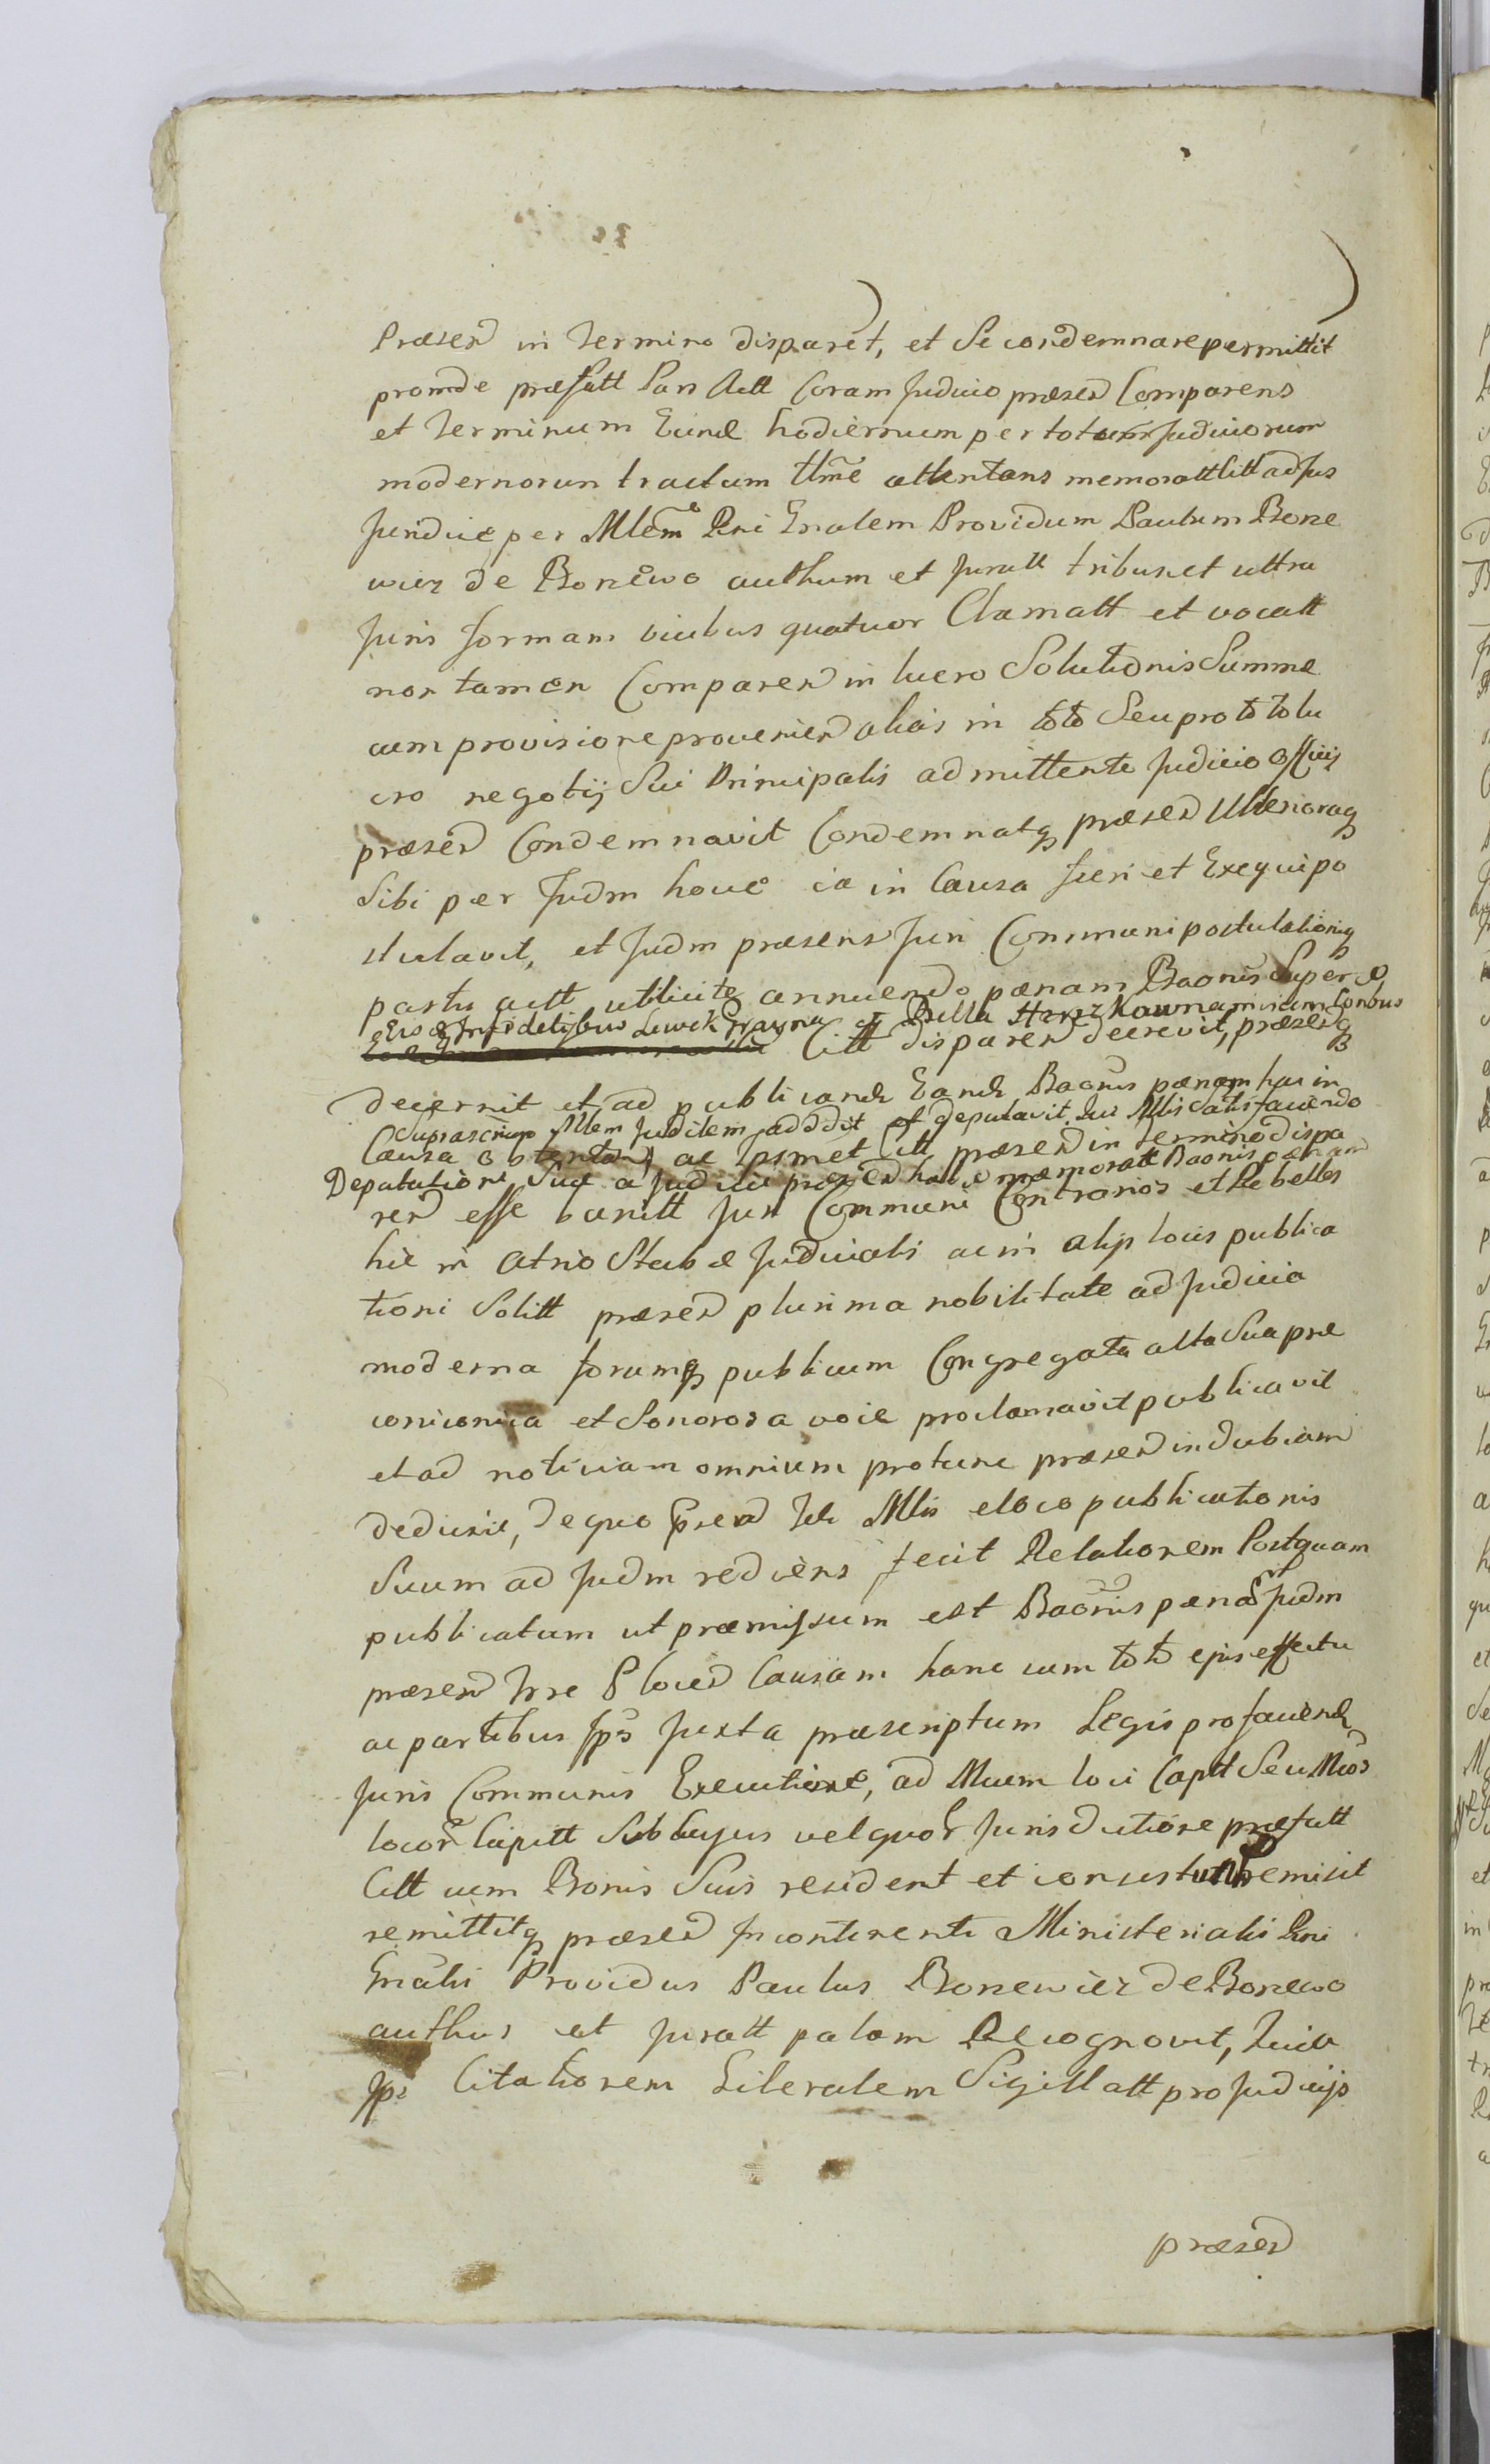 Præsen in Termino disparet, et Se condemnare permittit
proinde præfatt Pars Actt Coram Judicio præsen Comparens
et Terminum Eund hodiernum per totum Judiciorum
modernorum tractum ttme attentans memoratt Citt ad Jus
Juridice per Mlem Rni Gnalem Providum Paulum Bone
wicz de Bonewo authum et Juratt tribus et ultra
Juris formam vicibus quatuor Clamatt et vocatt
non tamen Comparen in lucro Solutionis Summæ
cum provisione provenien alias in toto Seu pro toto lu
cro negotij Sui Principalis admittente Judicio Officij
præsen Condemnavit Condemnatq præsen Ulterioraq
Sibi per Judm hocce ia in Causa fieri et Exequi po
stulavit, et Judm præsens Juri Communi postulationiq
partis actt utilicite annuendo pænam Baonis Super
Eis Infidelibus Lewek et Bella Herszkowna Conbus
Citt disparen decrevit, præsenq
decernit et ad publicand Eand Baonis pænam hac in
Suprascripto Mlem Judilem addidit et deputavit qui Mlis Satisfaciendo
Causa obtentam ac Ipsmet Citt præsen in Termino dispa
Deputationi Suæ a Judicio præsen memoratt Baonis pænam
ren esse banitt Juri Communi Contrarios et Rebelles
hic in atrio Stubæ Judicialis ac in alijs locis publica
tioni Solitt præsen plurima nobilitate ad Judicia
moderna forumq publicum Congregata alta Sua præ
coniconica et Sonorosa voce proclamavit publicavit
et ad noticiam omnium protunc præsen indubiam
deduxit, de quo præsen Mlis e loco publicationis
Suum ad Judm rediens fecit Relationem Postquam
publicatam ut præmissum est Baonis pænam Judm
præsen Trre Plocen Causam hanc cum toto ejus effectu
ac partibus Jps Juxta præscriptum Legis pro faciend
Juris Communis Executione, ad Mucm loci Captt Seu Mcos
locor Capitt Sub cujus vel quor Jurisdictione præfatt
Citt cum Bonis Suis resident et consistunt remisit
remittitq præsen Incontinenti Ministerialis Rni
Gnalis Providus Paulus Bonewicz de Bonewo
authus et Juratt palam Recognovit, quia
Jps Citationem Literalem Sigillatt pro Judicijs
præsen